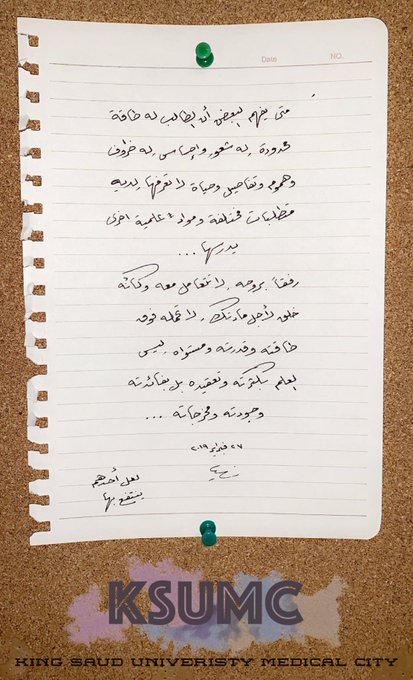 Date
NO.
متى يفهم البعض أن الطالب له طاقة
محدودة له شعور وإحساس له ظروف
وهموم وتفاصيل وحياة لا تعرفها لديه
متطلبات مختلفة ومواد علمية اخرى
يدرسها ...
رفقاً بروحه لا تتعامل معه وكأنه
خلق لأجل مادتك لا تحمله فوق
طاقته وقدرته ومستواه ليس
العلم بكثرته وتعقيده بل بفائدته
وجودته ومخرجاته ...
٢٧ فبراير ٢٠١٩
لعل أحدهم
ينتفع بها
KSUMC
KING SAUD UNIVERISTY MEDICAL CITY